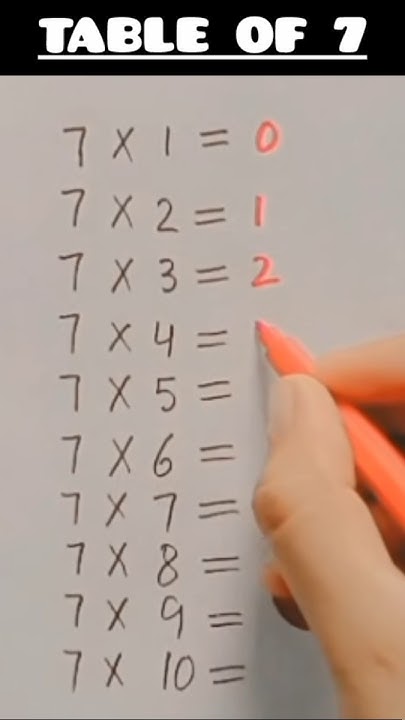 TABLE OF 7
7 × 1 = 0
7 × 2 = 1
7 × 3 = 2
7 × 4 =
7 × 5 =
7 × 6 =
7 × 7 =
7 × 8 =
7 × 9 =
7 × 10 =